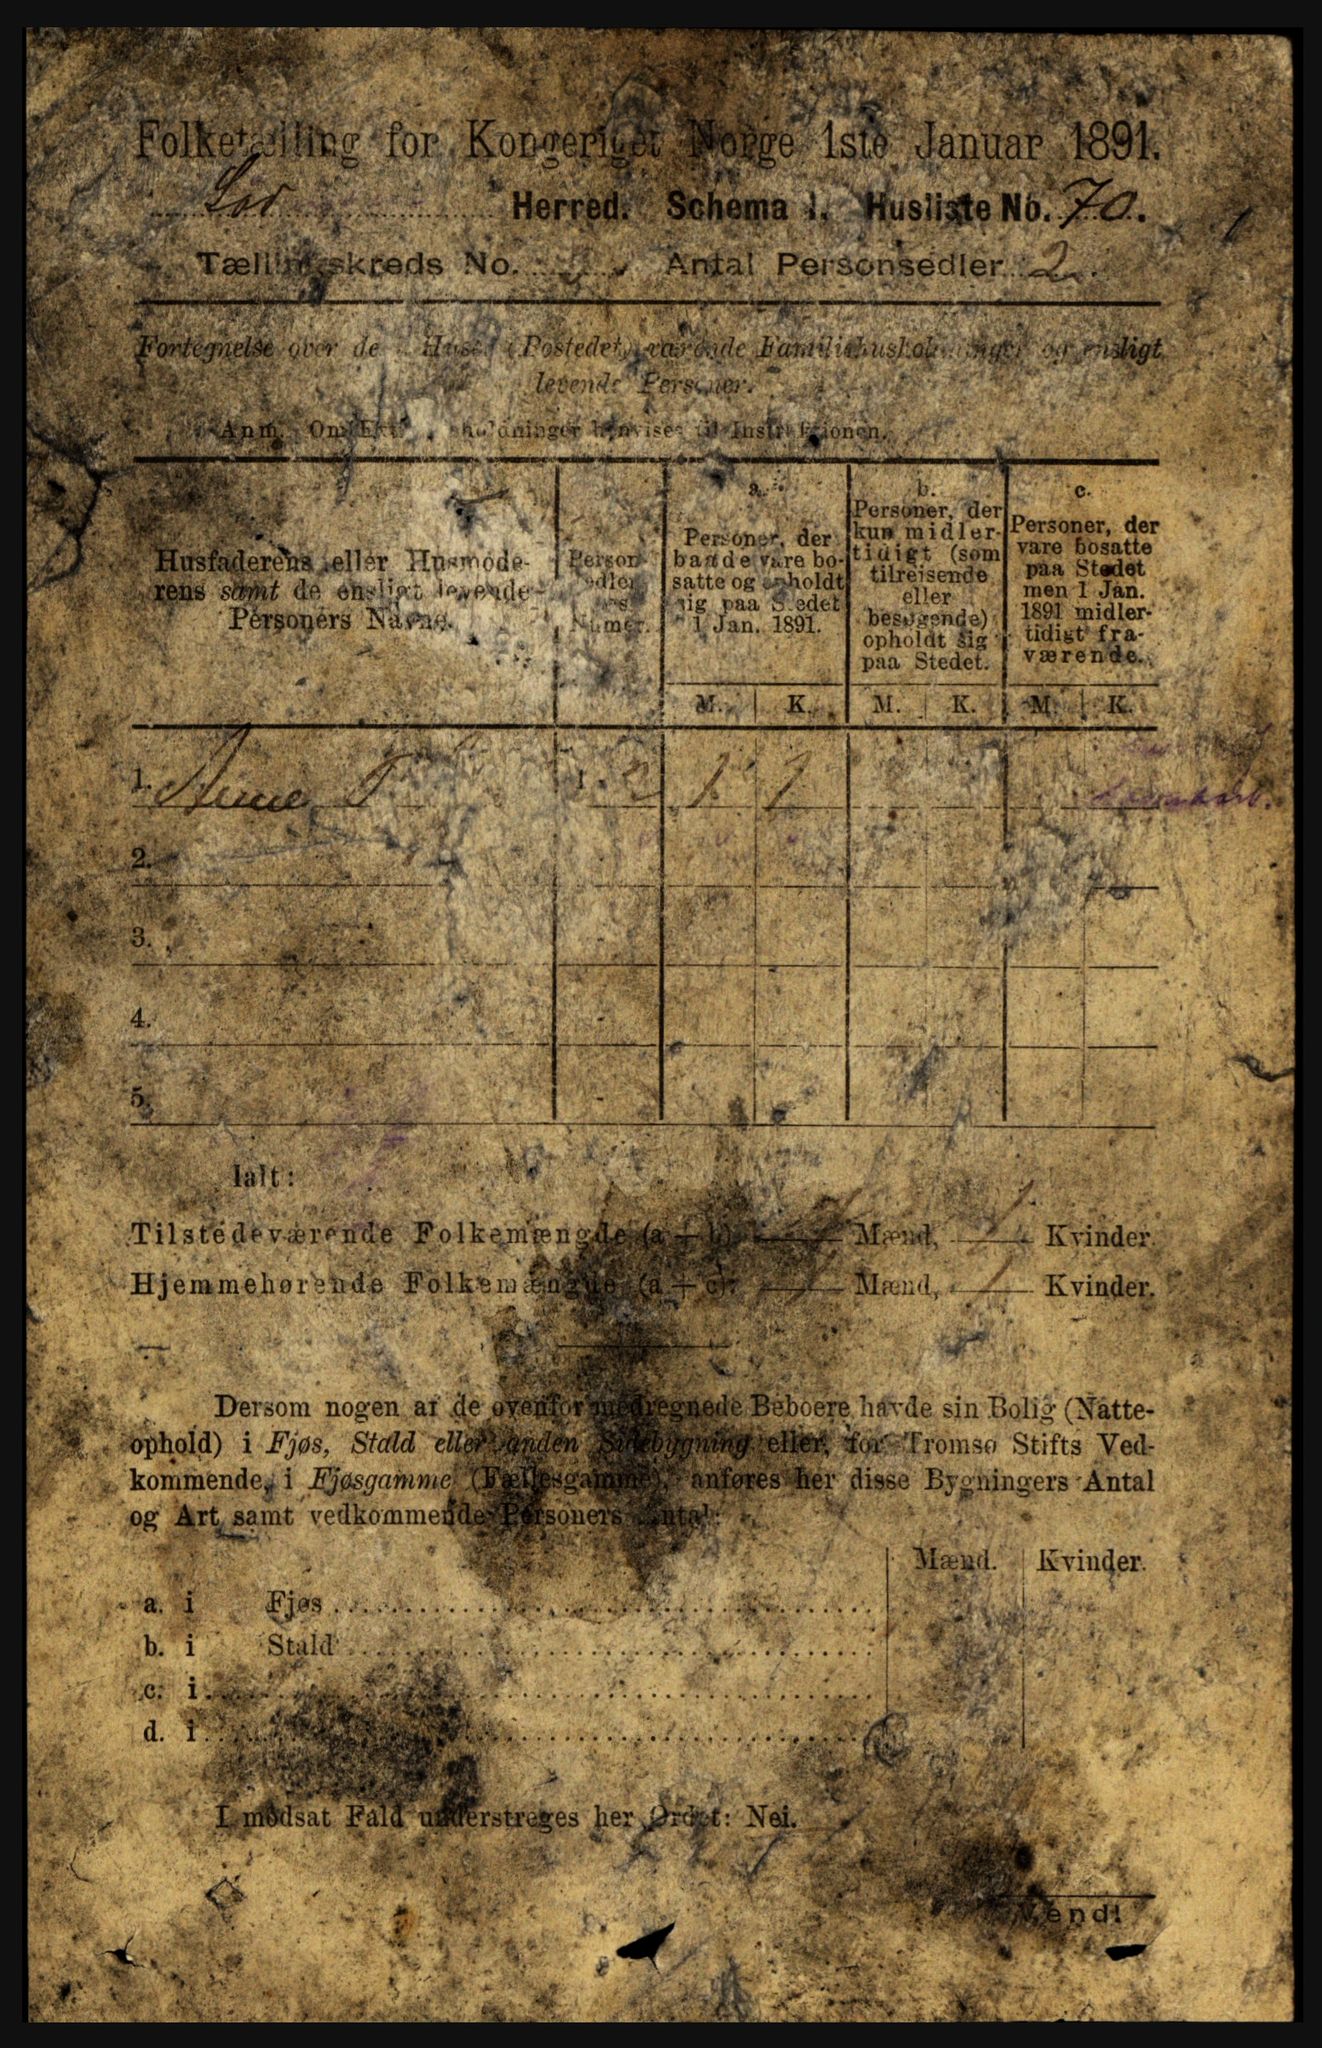 Folketælling for Kongeriget Norge 1ste Januar 1891.
Herred. Schema 1. Husliste No. 70.
Tællingskreds No. Antal Personsedler 2.
Fortegnelse over de Huset (Postedet) værende Familiehusholdninger og ensligt
levende Personer.
Anm. Om holdninger henvises til Instruktionen.
Husfaderens eller Husmode-
rens samt de ensligt levende
Personers Navne.
Person-
sedler-
nes
Numer.
a.
Personer, der
baade vare bo-
satte og opholdt
sig paa Stedet
1 Jan. 1891.
b.
Personer, der
kun midler-
tidigt (som
tilreisende
eller
besøgende)
opholdt sig
paa Stedet.
c.
Personer, der
vare bosatte
paa Stedet
men 1 Jan.
1891 midler-
tidigt fra-
værende.
M. K. M. K. M. K.
1. Anne 1. 2 1 1
2.
3.
4.
5.
Ialt:
Tilstedeværende Folkemængde (a + b): 1 Mænd, 1 Kvinder.
Hjemmehørende Folkemængde (a + c): 1 Mænd, 1 Kvinder.
Dersom nogen af de ovenfor medregnede Beboere havde sin Bolig (Natte-
ophold) i Fjøs, Stald eller anden Sidebygning eller, for Tromsø Stifts Ved-
kommende, i Fjøsgamme (Fællesgamme), anføres her disse Bygningers Antal
og Art samt vedkommende Personers Antal:
Mænd. Kvinder.
a. i Fjøs
b. i Stald
c. i
d. i
I modsat Fald understreges her Ordet: Nei.
Vend!